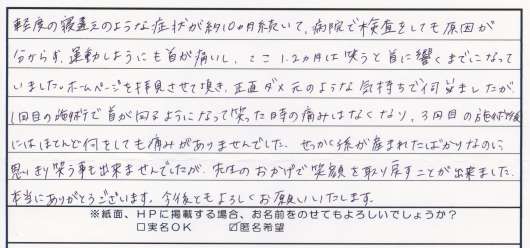 軽度の寝違えのような症状が約10ヵ月続いて、病院で検査をしても原因が
分からず、運動しようにも首が痛いし、ここ1.2ヵ月は笑うと首に響くまでになって
いました。ホームページを拝見させて頂き、正直ダメ元のような気持ちで伺いましたが、
1回目の施術で首が回るようになって笑った時の痛みはなくなり、3回目の施術後
にはほとんど何をしても痛みがありませんでした。せっかく孫が産まれたばかりなのに
思いきり笑う事も出来ませんでしたが、先生のおかげで笑顔を取り戻すことが出来ました。
本当にありがとうございます。今後ともよろしくお願いいたします。
※紙面、HPに掲載する場合、お名前をのせてもよろしいでしょうか?
□実名OK ☑匿名希望